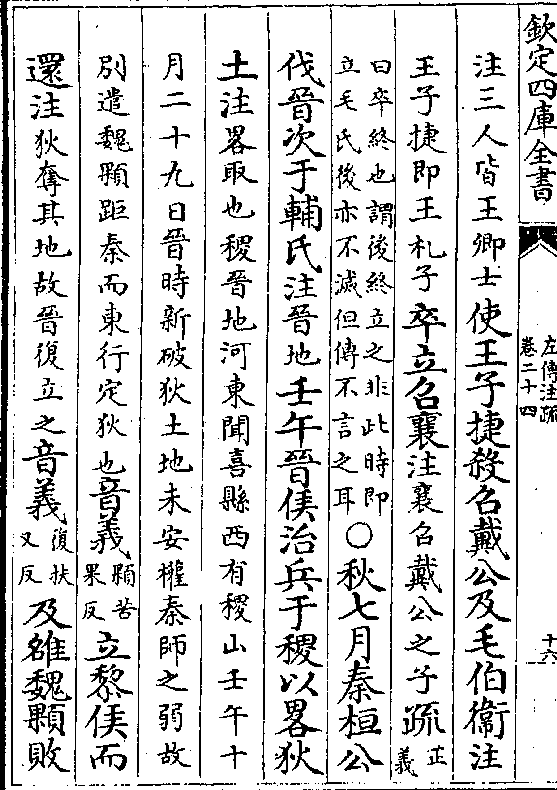 欽定四庫全書
左傳注疏
卷二十四
十六
注三人皆王卿士使王子捷殺召戴公及毛伯衞注
王子捷即王札子卒立召襄注襄召戴公之子疏正義
曰卒終也謂後終立之非此時即
立毛氏後亦不滅但傳不言之耳〇秋七月秦桓公
伐晉次于輔氏注晉地壬午晉侯治兵于稷以畧狄
土注畧取也稷晉地河東聞喜縣西有稷山壬午十
月二十九日晉時新破狄土地未安權秦師之弱故
別遣魏顆距秦而東行定狄也音義顆苦果反立黎侯而
還注狄奪其地故晉復立之音義復扶又反及雒魏顆敗